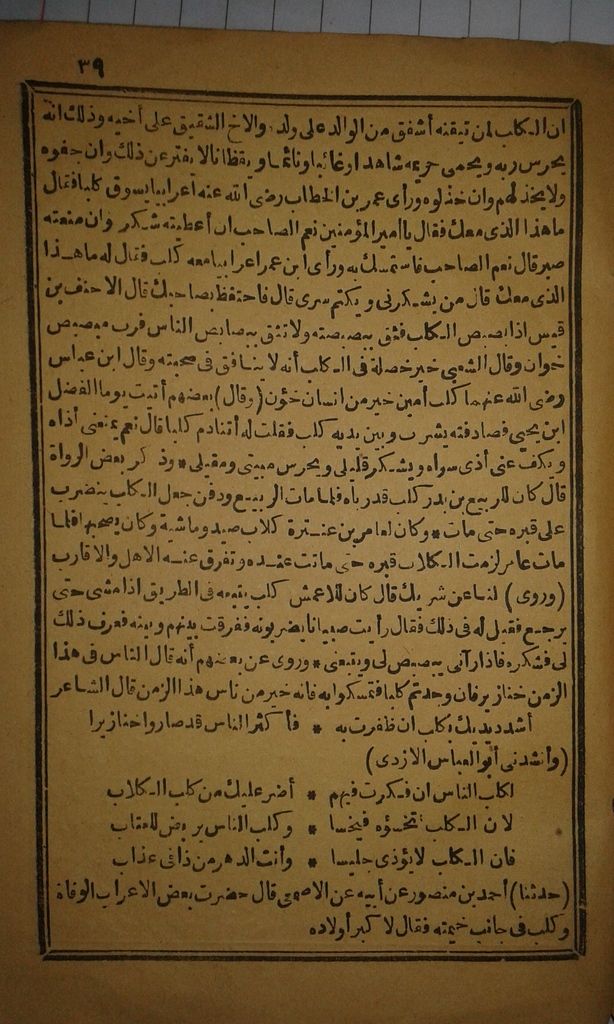 ٣٩
ان الكلب لمن تيقنه أشفق من الوالد على ولده والاخ الشقيق على أخيه وذلك انه
يحرس ربه ويحمى حريمه شاهدا وغائبا ونائما ويقظانا لا يفتر عن ذلك وان جفوه
ولا يخذلهم وان خذلوه ورأى عمر بن الخطاب رضى الله عنه أعرابيا يسوق كلبا فقال
ما هذا الذى معك فقال يا أمير المؤمنين نعم الصاحب ان أعطيته شكر وان منعته
صبر قال نعم الصاحب فاستمسك به ورأى ابن عمر اعرابيا معه كلب فقال له ما هذا
الذى معك قال من يشكرنى ويكتم سرى قال فاحتفظ بصاحبك قال الاحنف بن
قيس اذا بصبص الكلب فثق ببصبصته ولا تثق ببصابص الناس فرب مبصبص
خوان وقال الشعبى خير خصلة فى الكلب أنه لا ينافق فى محبته وقال ابن عباس
رضى الله عنهما كلب أمين خير من انسان خؤن (وقال) بعضهم أتيت يوما الفضل
ابن يحيى فصادفته يشرب وبين يديه كلب فقلت له أتنادم كلبا قال نعم يمنعنى أذاه
ويكف عنى أذى سواه ويشكر قليلى ويحرس مبيتى ومقيلى * وذكر بعض الرواة
قال كان للربيع بن بدر كلب قد رباه فلما مات الربيع ودفن جعل الكلب يتضرب
على قبره حتى مات * وكان لعامر بن عنترة كلاب صيد وماشية وكان يصحبها فلما
مات عامر لزمت الكلاب قبره حتى ماتت عنده وتفرق عنه الاهل والاقارب
(وروى) لنا عن شريك قال كان للاعمش كلب يتبعه فى الطريق اذا مشى حتى
يرجع فقيل له فى ذلك فقال رأيت صبيانا يضربونه ففرقت بينهم وبينه فعرف ذلك
لى فشكره فاذا رآنى يبصبص لى ويتبعنى * وروى عن بعضهم أنه قال الناس فى هذا
الزمن خنازير فان وجدتم كلبا فتمسكوا به فانه خير من ناس هذا الزمن قال الشاعر
أشدد يديك بكلب ان ظفرت به * فأكثر الناس قد صاروا خنازيرا
(وأنشدنى أبو العباس الازدى)
لكلب الناس ان فكرت فيهم * أضر عليك من كلب الكلاب
لان الكلب تخسؤه فيخسا * وكلب الناس يربض للعتاب
فان الكلب لا يؤذى جليسا * وأنت الدهر من ذا فى عذاب
(حدثنا) أحمد بن منصور عن أبيه عن الاصمعى قال حضرت بعض الاعراب الوفاة
وكلب فى جانب خيمته فقال لا كبر أولاده